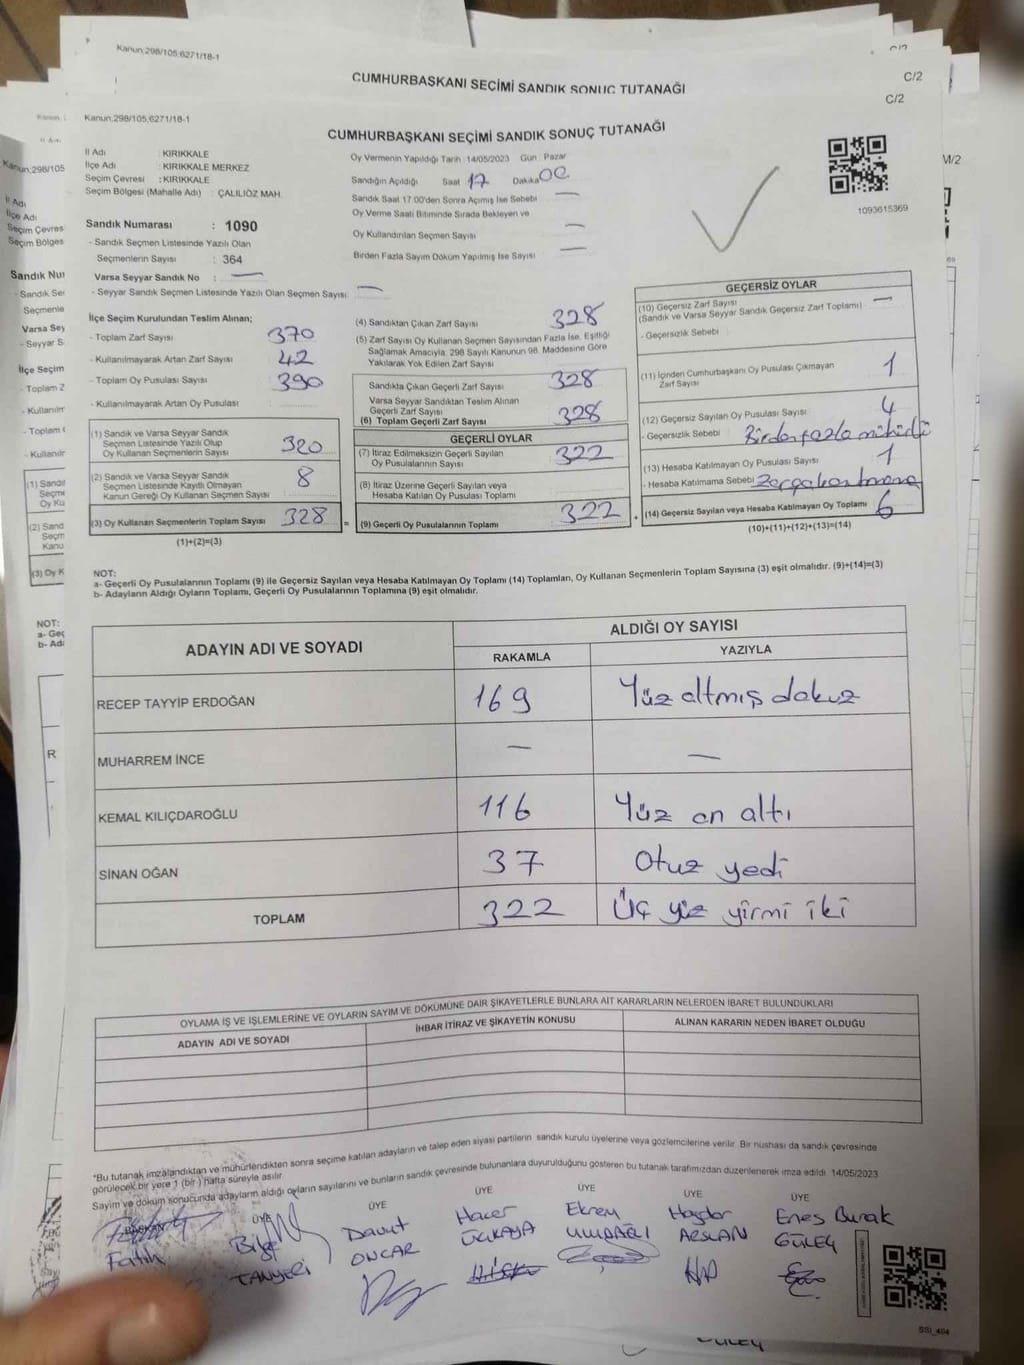 Kanun;298/105;6271/18-1
CUMHURBAŞKANI SEÇİMİ SANDIK SONUÇ TUTANAĞI
C/2
Kanun;298/105;6271/18-1
C/2
CUMHURBAŞKANI SEÇİMİ SANDIK SONUÇ TUTANAĞI
M/2
İl Adı : KIRIKKALE
İlçe Adı : KIRIKKALE MERKEZ
Seçim Çevresi : KIRIKKALE
Seçim Bölgesi (Mahalle Adı) : ÇALILIÖZ MAH.
Sandık Numarası : 1090
- Sandık Seçmen Listesinde Yazılı Olan
Seçmenlerin Sayısı : 364
Varsa Seyyar Sandık No : —
- Seyyar Sandık Seçmen Listesinde Yazılı Olan Seçmen Sayısı: —
Oy Vermenin Yapıldığı Tarih 14/05/2023 Gün Pazar
Sandığın Açıldığı Saat 17 Dakika 00
Sandık Saat 17.00'den Sonra Açımış İse Sebebi —
Oy Verme Saati Bitiminde Sırada Bekleyen ve
Oy Kullandırılan Seçmen Sayısı —
Birden Fazla Sayım Döküm Yapılmış İse Sayısı —
1093615369
İlçe Seçim Kurulundan Teslim Alınan;
- Toplam Zarf Sayısı 370
- Kullanılmayarak Artan Zarf Sayısı 42
- Toplam Oy Pusulası Sayısı 390
- Kullanılmayarak Artan Oy Pusulası
(1) Sandık ve Varsa Seyyar Sandık
Seçmen Listesinde Yazılı Olup
Oy Kullanan Seçmenlerin Sayısı 320
(2) Sandık ve Varsa Seyyar Sandık
Seçmen Listesinde Kayıtlı Olmayan
Kanun Gereği Oy Kullanan Seçmen Sayısı 8
(3) Oy Kullanan Seçmenlerin Toplam Sayısı 328
(1)+(2)=(3)
(4) Sandıktan Çıkan Zarf Sayısı 328
(5) Zarf Sayısı Oy Kullanan Seçmen Sayısından Fazla İse, Eşitliği
Sağlamak Amacıyla, 298 Sayılı Kanunun 98. Maddesine Göre
Yakılarak Yok Edilen Zarf Sayısı
Sandıkta Çıkan Geçerli Zarf Sayısı 328
Varsa Seyyar Sandıktan Teslim Alınan
Geçerli Zarf Sayısı
(6) Toplam Geçerli Zarf Sayısı 328
GEÇERLİ OYLAR
(7) İtiraz Edilmeksizin Geçerli Sayılan
Oy Pusulalarının Sayısı 322
(8) İtiraz Üzerine Geçerli Sayılan veya
Hesaba Katılan Oy Pusulaları Toplamı
(9) Geçerli Oy Pusulalarının Toplamı 322
GEÇERSİZ OYLAR
(10) Geçersiz Zarf Sayısı
(Sandık ve Varsa Seyyar Sandık Geçersiz Zarf Toplamı) —
- Geçersizlik Sebebi :
(11) İçinden Cumhurbaşkanı Oy Pusulası Çıkmayan
Zarf Sayısı 1
(12) Geçersiz Sayılan Oy Pusulası Sayısı 4
- Geçersizlik Sebebi Birden fazla mühürlü
(13) Hesaba Katılmayan Oy Pusulası Sayısı 1
- Hesaba Katılmama Sebebi
(14) Geçersiz Sayılan veya Hesaba Katılmayan Oy Toplamı 6
(10)+(11)+(12)+(13)=(14)
NOT:
a- Geçerli Oy Pusulalarının Toplamı (9) ile Geçersiz Sayılan veya Hesaba Katılmayan Oy Toplamı (14) Toplamları, Oy Kullanan Seçmenlerin Toplam Sayısına (3) eşit olmalıdır. (9)+(14)=(3)
b- Adayların Aldığı Oyların Toplamı, Geçerli Oy Pusulalarının Toplamına (9) eşit olmalıdır.
ADAYIN ADI VE SOYADI
ALDIĞI OY SAYISI
RAKAMLA YAZIYLA
RECEP TAYYİP ERDOĞAN 169 Yüz altmış dokuz
MUHARREM İNCE — —
KEMAL KILIÇDAROĞLU 116 Yüz on altı
SİNAN OĞAN 37 Otuz yedi
TOPLAM 322 Üç yüz yirmi iki
OYLAMA İŞ VE İŞLEMLERİNE VE OYLARIN SAYIM VE DÖKÜMÜNE DAİR ŞİKAYETLERLE BUNLARA AİT KARARLARIN NELERDEN İBARET BULUNDUKLARI
ADAYIN ADI VE SOYADI İHBAR İTİRAZ VE ŞİKAYETİN KONUSU ALINAN KARARIN NEDEN İBARET OLDUĞU
*Bu tutanak imzalandıktan ve mühürlendikten sonra seçime katılan adayların ve talep eden siyasi partilerin sandık kurulu üyelerine veya gözlemcilerine verilir. Bir nüshası da sandık çevresinde
görülecek bir yere 1 (bir) hafta süreyle asılır.
Sayım ve döküm sonucunda adayların aldığı oyların sayılarını ve bunların sandık çevresinde bulunanlara duyurulduğunu gösteren bu tutanak tarafımızdan düzenlenerek imza edildi. 14/05/2023
BAŞKAN ÜYE ÜYE ÜYE ÜYE ÜYE ÜYE
Fatih
Bilge TANYERİ
Davut ONCAR
Hacer ÜÇKAYA
Ekrem
Haydar ARSLAN
Enes Burak GÜLEÇ
SSI_404